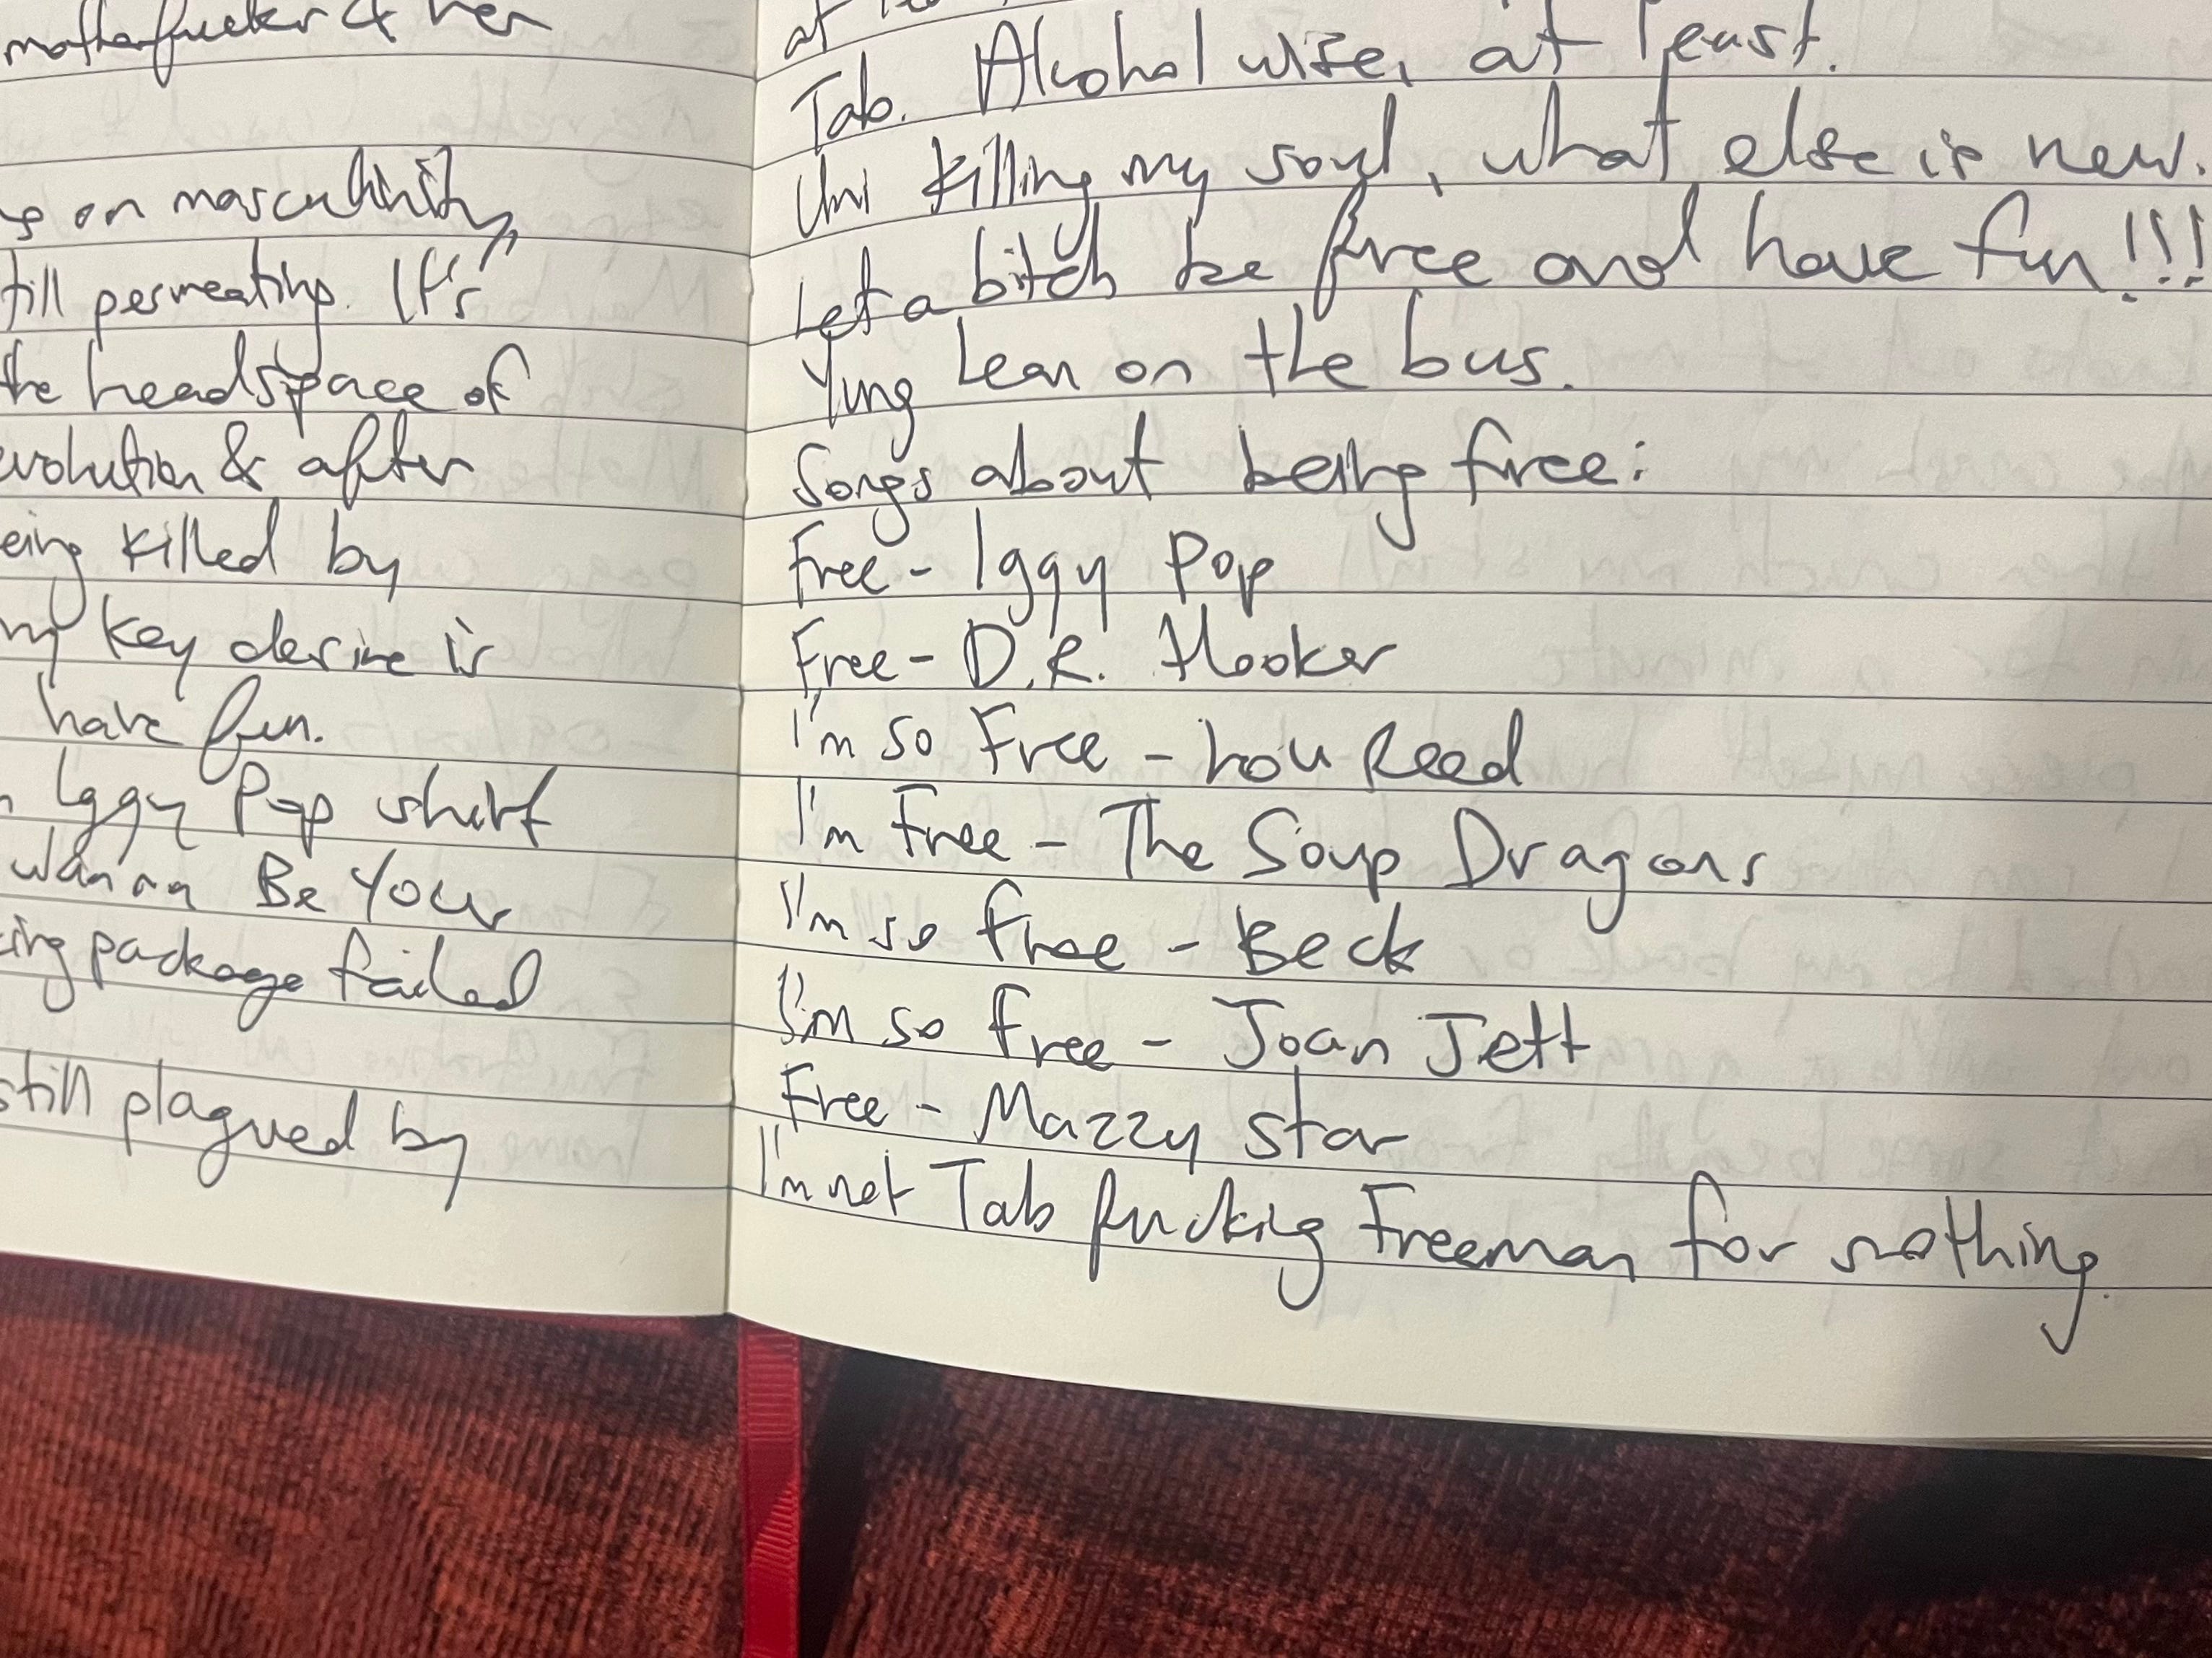 motherfucker & her
on masculinity,
till permeating. It's
the headspace of
evolution & after
eing killed by
my key desire is
have fun.
Iggy Pop shirt
wanna Be Your
ing package failed
still plagued by
at
Tab. Alcohol wise, at least.
Uni killing my soul, what else is new.
Let a bitch be free and have fun!!!
Yung Lean on the bus.
Songs about being free:
Free - Iggy Pop
Free - D.R. Hooker
I'm so Free - Lou Reed
I'm Free - The Soup Dragons
I'm so free - Beck
I'm so free - Joan Jett
Free - Mazzy Star
I'm not Tab fucking Freeman for nothing.